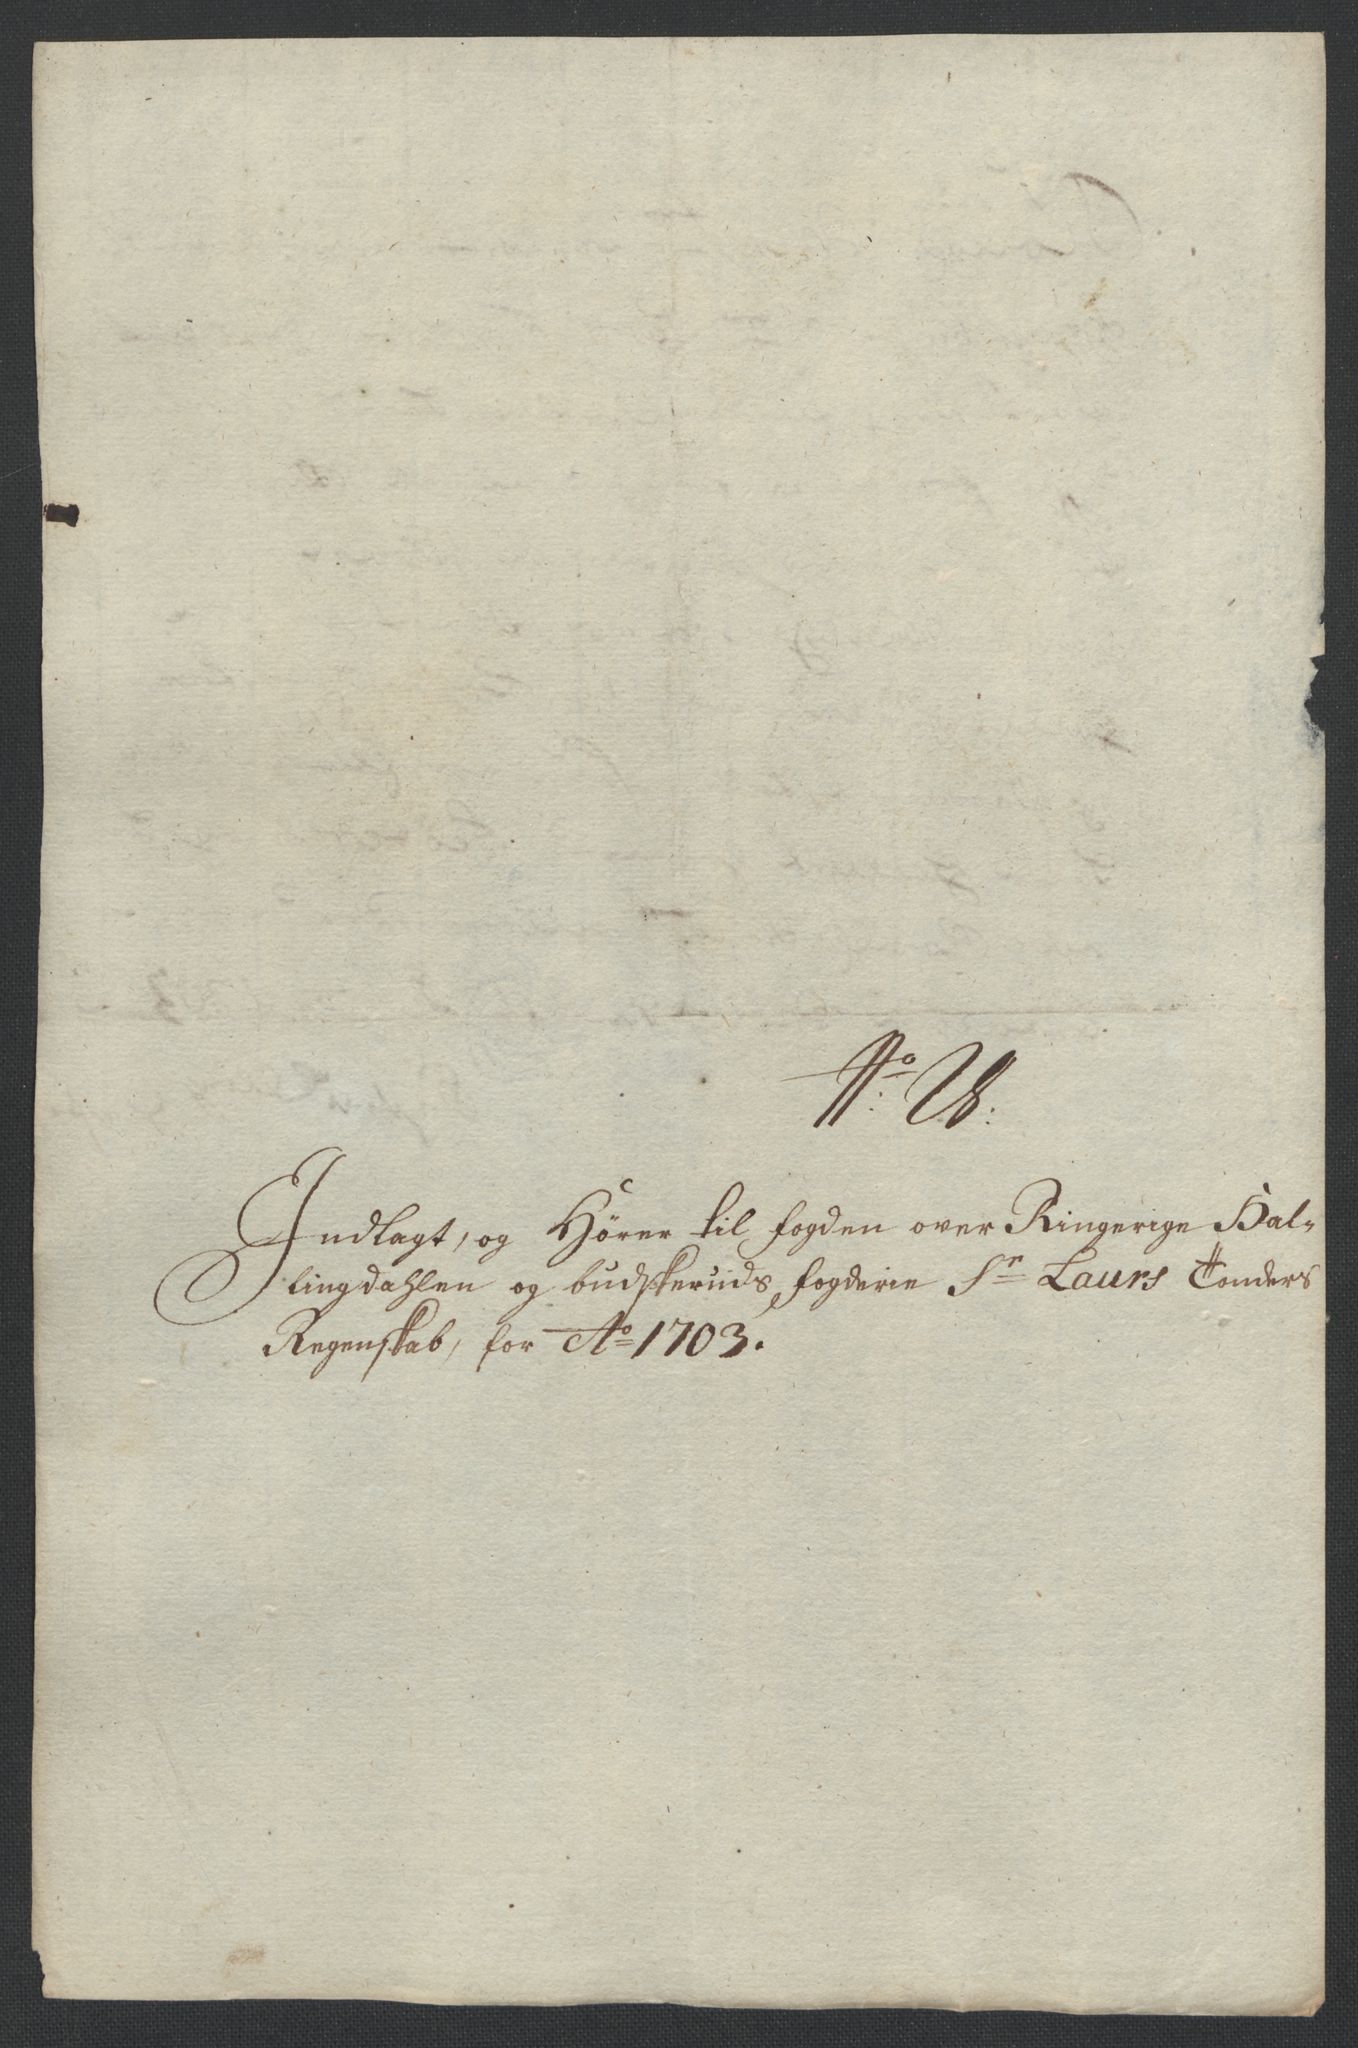 No: U:
Indlagt, og Hörer til fogden over Ringerige Hal-
lingdahlen og budskeruds fogderie Sr Laurs Tonders
Regenskab, for Ao 1703.